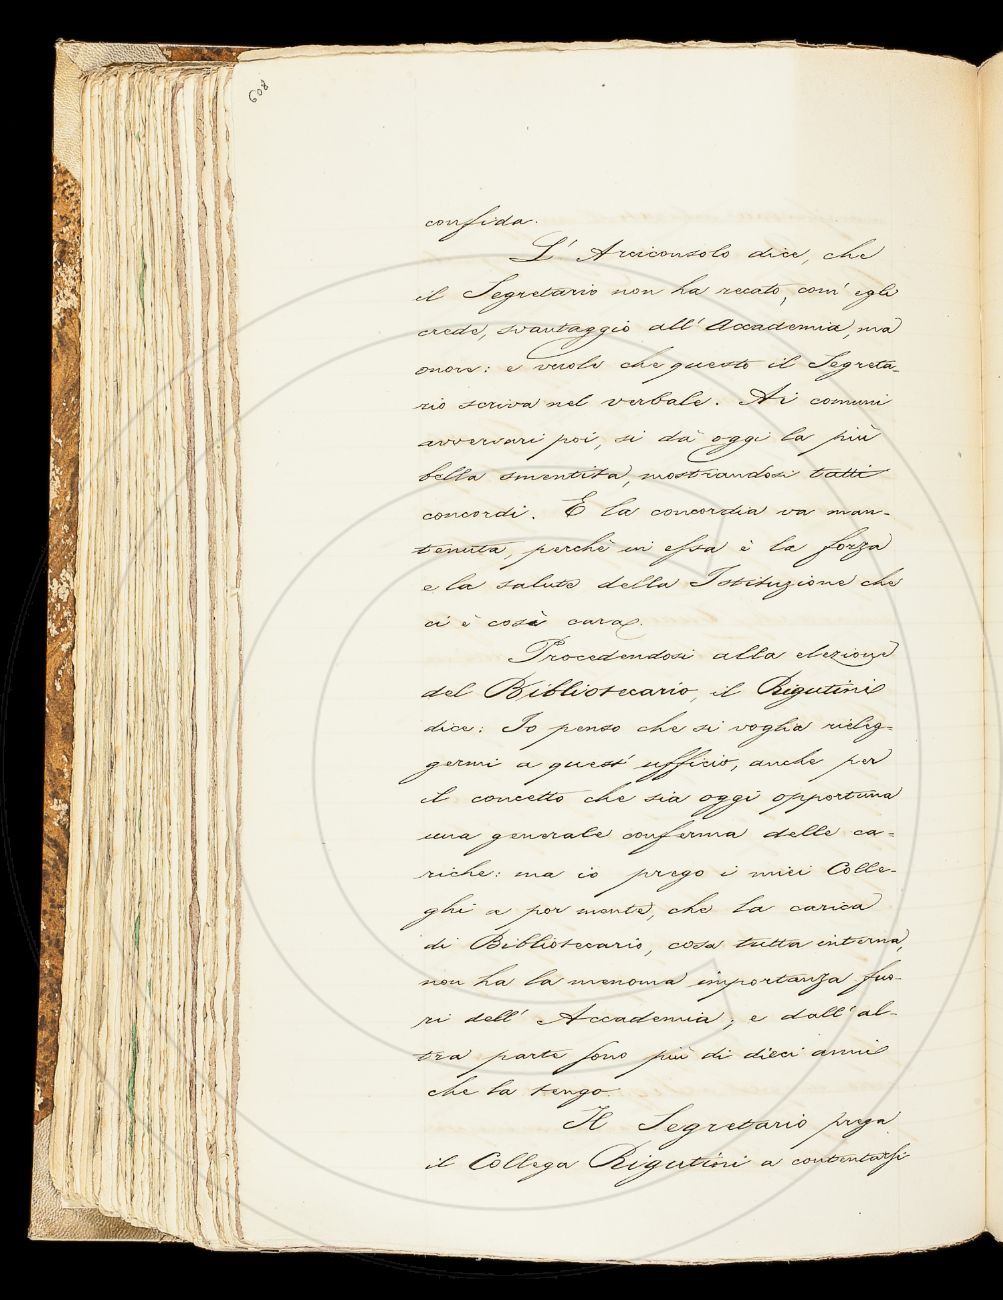 608
confida.
L' Arciconsolo dice, che
il Segretario non ha recato, com' egli
crede, svantaggio all' Accademia, ma
onore: e vuole che questo il Segreta-
rio scriva nel verbale. Ai comuni
avversari poi, si dà oggi la più
bella smentita, mostrandosi tutti
concordi. E la concordia va man-
tenuta, perchè in essa è la forza
e la salute della Istituzione che
ci è così cara.
Procedendosi alla elezione
del Bibliotecario, il Rigutini
dice: Io penso che si voglia rieleg-
germi a quest' ufficio, anche per
il concetto che sia oggi opportuna
una generale conferma delle ca-
riche: ma io prego i miei Colle-
ghi a por mente, che la carica
di Bibliotecario, cosa tutta interna,
non ha la menoma importanza fuo-
ri dell' Accademia; e dall' al-
tra parte sono più di dieci anni
che la tengo.
Il Segretario prega
il Collega Rigutini a contentarsi